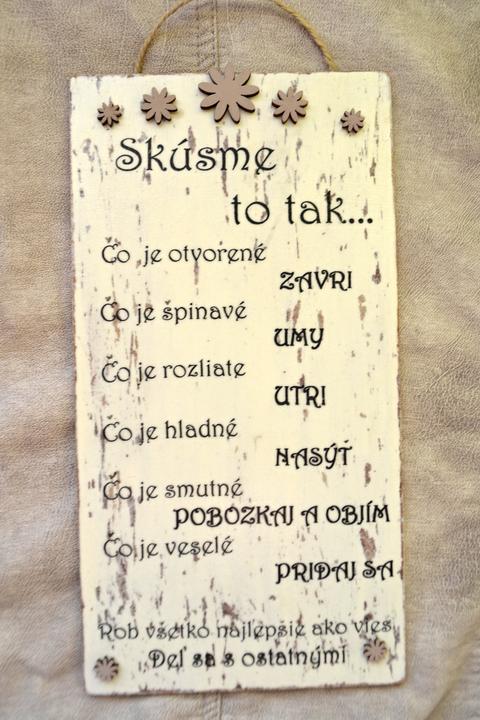 Skúsme
to tak...
Čo je otvorené
ZAVRI
Čo je špinavé
UMY
Čo je rozliate
UTRI
Čo je hladné
NASÝŤ
Čo je smutné
POBOZKAJ A OBJÍM
Čo je veselé
PRIDAJ SA
Rob všetko najlepšie ako vieš
Deľ sa s ostatnými